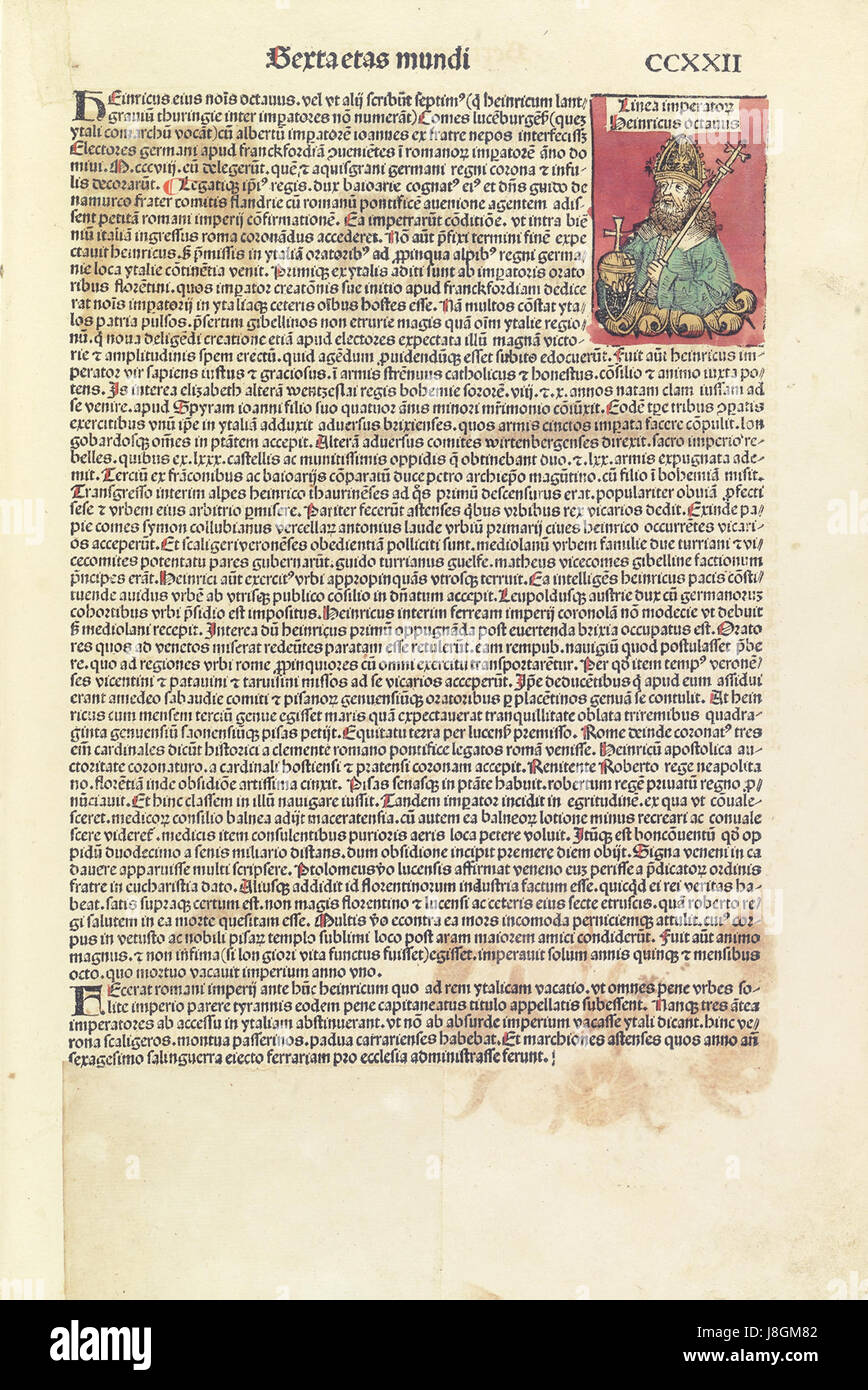 Sexta etas mundi
CCXXII
Linea imperatoꝝ
Heinricus octauus
HEinricus eius noīs octauus. vel vt alij scribūt septimꝰ (q̄ heinricum lant⸗
grauiū thuringie inter imꝑatores nō numerāt) Comes lucēburgēs (quez
ytali comarchū vocāt) cū albertū imꝑatorē ioannes ex fratre nepos interfecisset
Electores germani apud franckfordiā ꝯueniētes ī romanoꝝ imꝑatorē āno do
mini. M. cccviij. eū delegerūt. quē ⁊ aquisgrani germani regni corona ⁊ infu⸗
lis decorarūt. Legatiqꝫ ip̄iꝰ regis. dux baioarie cognatꝰ eiꝰ ⁊ dn̄s guido de
namurco frater comitis flandrie cū romanū pontificē auenione agentem adis⸗
sent petitā romani imperij cōfirmationē. Ea imperarūt cōditiōe. vt intra bien
niū italiā ingressus roma coronādus accederet. Nō aūt p̄fixi termini finē expe
ctauit heinricus. sꝫ p̄missis in ytaliā oratoribꝰ ad ꝓpinqua alpibꝰ regni germa⸗
nie loca ytalie cōtinētia venit. Primiqꝫ ex ytalis aditi sunt ab imꝑatoris orato
ribus florētini. quos imꝑator creatōnis sue initio apud franckfordiam dedice
rat noīs imperatorij in ytaliaqꝫ ceteris oībus hostes esse. Nā multos cōstat yta⸗
los patria pulsos. p̄sertim gibellinos non etrurie magis quā oīm ytalie regio⸗
nū. q̄ noua deligēdi creatione etiā apud electores expectata illū magnā victo⸗
rie ⁊ amplitudinis spem erectū. quid agēdum ꝓuidendūqꝫ esset subito edocuerūt. Fuit aūt heinricus im⸗
perator vir sapiens iustus ⁊ graciosus. ī armis strēnuus catholicus ⁊ honestus. cōsilio ⁊ animo iuxta po⸗
tens. Is interea elizabeth alterā wentzeslai regis bohemie sororē. viij. ⁊ x. annos natam clam iussam ad
se venire. apud Spyram ioanni filio suo quatuor ānis minori mr̄imonio cōiūxit. Eodē tꝑe tribus ꝯꝑatis
exercitibus vnū ip̄e in ytaliā adduxit aduersus brixienses. quos armis cinctos imꝑata facere cōpulit. lon
gobardosqꝫ om̄es in ptātem accepit. Alterā aduersus comites wirtenbergenses direxit. sacro imperio re⸗
belles. quibus ex. lxxx. castellis ac munitissimis oppidis q̄ obtinebant duo. ⁊. lxx. armis expugnata ade⸗
mit. Terciū ex frāconibus ac baioarijs cōparatū duce petro archiepo magūtino. cū filio ī bohemiā misit.
Transgresso interim alpes heinrico thaurinēses ad q̄s primū descensurus erat. populariter obuiā ꝓfecti
sese ⁊ vrbem eius arbitrio ꝑmisere. Pariter fecerūt astenses q̄bus vrbibus rex vicarios dedit. Exinde pa⸗
pie comes symon collubianus vercellaꝝ antonius laude vrbiū primarij ciues heinrico occurrētes vicari⸗
os acceperūt. Et scaligeri veronēses obedientiā polliciti sunt. mediolanū vrbem familie due turriani ⁊ vi⸗
cecomites potentatu pares gubernarūt. guido turrianus guelfe. matheus vicecomes gibelline factionum
p̄ncipes erāt. Heinrici aūt exercitꝰ vrbi appropinquās vtrosqꝫ terruit. Ea intelligēs heinricus pacis cōsti⸗
tuende auidus vrbē ab vtrisqꝫ publico cōsilio in dn̄atum accepit. Leupoldusqꝫ austrie dux cū germanorū
cohortibus vrbi p̄sidio est impositus. Heinricus interim ferream imperij coronolā nō modecie vt debuit
sꝫ mediolani recepit. Interea dū heinricus primū oppugnāda post euertenda brixia occupatus est. Orato
res quos ad venetos miserat redeūtes paratam esse retulerūt. eam rempub. nauigiū quod postulasset p̄be
re. quo ad regiones vrbi rome ꝓpinquiores cū omni exercitu transportaretur. Per qd̄ item tempꝰ veronē⸗
ses vicentini ⁊ patauini ⁊ taruisini missos ad se vicarios acceperūt. Ip̄e deducētibus q̄ apud eum assidui
erant amedeo sabaudie comiti ⁊ pisanoꝝ genuensiūqꝫ oratoribus ꝑ placētinos genuā se contulit. At hein
ricus cum mensem terciū genue egisset maris quā expectauerat tranquillitate oblata triremibus quadra⸗
ginta genuensiū saonensiūqꝫ pisas petijt. Equitatu terra per lucensꝫ premisso. Rome deinde coronatꝰ tres
eim̄ cardinales dicūt historici a clemente romano pontifice legatos romā venisse. Heinricū apostolica au⸗
ctoritate coronaturo. a cardinali hostiensi ⁊ pratensi coronam accepit. Renitente Roberto rege neapolita
no. florētiā inde obsidiōe artissima cinxit. Pisas senasqꝫ in ptāte habuit. robertum regē priuatū regno ꝓ⸗
nūciauit. Et hinc classem in illū nauigare iussit. Tandem imꝑator incidit in egritudinē. ex qua vt cōuale⸗
sceret. medicoꝝ consilio balnea adijt maceratensia. cū autem ea balneoꝝ lotione minus recreari ac conuale
scere videretꝰ. medicis item consulentibus purioris aeris loca petere voluit. Itūqꝫ est boncōuentū qd̄ op
pidū duodecimo a senis miliario distans. dum obsidione incipit premere diem obijt. Signa veneni in ca
dauere apparuisse multi scripsere. Ptolomeus v̄o lucensis affirmat veneno euꝫ perisse a p̄dicatoꝝ ordinis
fratre in eucharistia dato. Aliusqꝫ addidit id florentinorum industria factum esse. quicqd̄ ei rei veritas ha⸗
beat. satis supraqꝫ certum est. non magis florentino ⁊ lucensi ac ceteris eius secte etruscis. quā roberto re⸗
gi salutem in ea morte quesitam esse. Multis v̄o econtra ea mors incomoda perniciemqꝫ attulit. cuiꝰ cor⸗
pus in vetusto ac nobili pisaꝝ templo sublimi loco post aram maiorem amici condiderūt. Fuit aūt animo
magnus. ⁊ non infima (si longiori vita functus fuisset) egisset. imperauit solum annis quinqꝫ ⁊ mensibus
octo. quo mortuo vacauit imperium anno vno.
FEcerat romani imperij ante hūc heinricum quo ad rem ytalicam vacatio. vt omnes pene vrbes so⸗
lite imperio parere tyrannis eodem pene capitaneatus titulo appellatis subessent. Nanqꝫ tres ātea
imperatores ab accessu in ytaliam abstinuerant. vt nō ab absurde imperium vacasse ytali dicant. hinc ve⸗
rona scaligeros. montua passerinos. padua carrarienses habebat. Et marchiones astenses quos anno añ
sexagesimo salinguerra eiecto ferrariam pro ecclesia administrasse ferunt.
alamy
Image ID: J8GM82
www.alamy.com